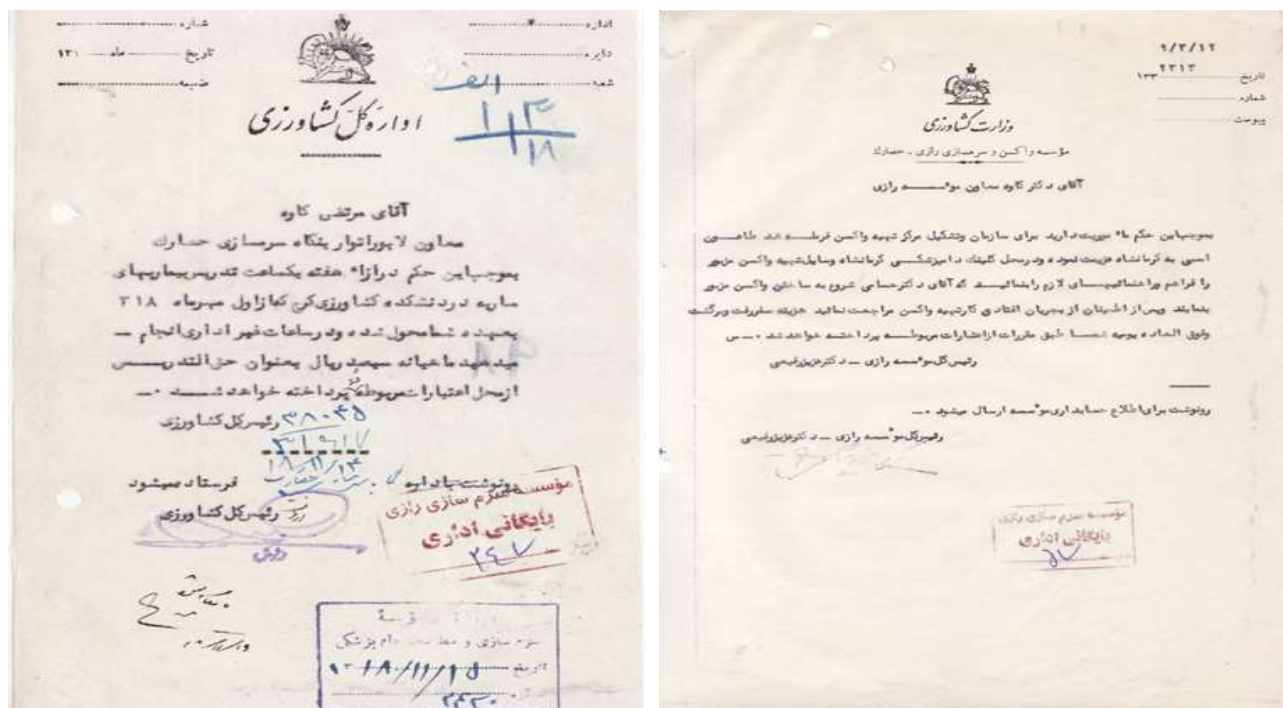 شماره
تاریخ ماه ۱۳۱
ضمیمه
اداره
دایره
شعبه
الف
ادارهٔ کل کشاورزی
آقای مرتضی کاوه
معاون لابوراتوار بنگاه سرمسازی حصارک
بموجب این حکم درازاء هفته یکساعت تدریس بیماریهای
ساریه دردانشکده کشاورزی کرج که ازاول مهرماه ۳۱۸
بعهده شمامحول شده ودرساعات غیر اداری انجام ــ
میدهید ماهیانه سیصد ریال بعنوان حق التدریس
ازمحل اعتبارات مربوطه پرداخته خواهد شد ۰ــ
رئیس کل کشاورزی
۳۸۰۴۵
رونوشت باداره فرستاده میشود
رئیس کل کشاورزی
مؤسسه سرم سازی رازی
بایگانی اداری
۲۴۷
مؤسسهٔ
سرم سازی و دام پزشکی
تاریخ ۱۳۱۸/۱۱/۱۵
۹/۳/۱۲
۲۳۱۳
تاریخ ۱۳۳
شماره
پیوست
وزارت کشاورزی
مؤسسه واکسن و سرمسازی رازی ـ حصارک
آقای دکتر کاوه معاون موسسه رازی
بموجب این حکم ماموریت دارید برای سازمان وتشکیل مرکز تهیه واکسن قرطبه ضد طاعون
اسبی به کرمانشاه عزیمت نموده ودرمحل کلینیک دامپزشکی کرمانشاه وسایل تهیه واکسن مزبور
را فراهم وراهنمائیهای لازم رابنمائید که آقای دکترحسامی شروع به ساختن واکسن مزبور
بنمایند وپس از اطمینان از بجریان افتادن کارتهیه واکسن مراجعت نمائید هزینه سفررفت وبرگشت
وفوق العاده یومیه شما طبق مقررات ازاعتبارات مربوطه پرداخته خواهد شد ۰ــ س
رئیس کل موسسه رازی ــ دکترعزیزرفیعی
رونوشت برای اطلاع حسابداری موسسه ارسال میشود ۰ــ
رئیس کل موسسه رازی ــ دکترعزیزرفیعی
مؤسسه سرم سازی رازی
بایگانی اداری